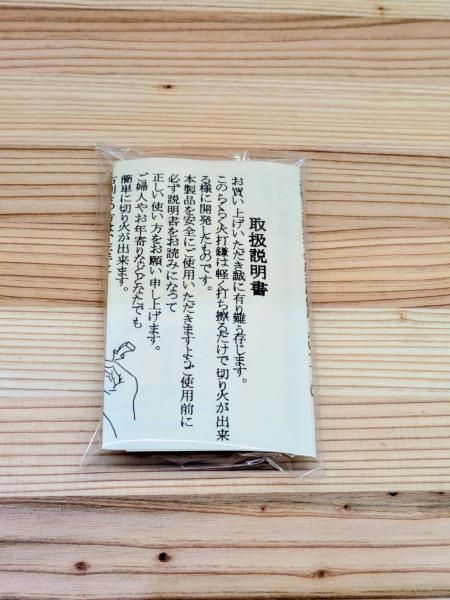 取扱説明書
お買い上げいただき誠に有り難う存じます。
このらくらく火打鎌は軽く打ち擦るだけで切り火が出来
る様に開発したものです。
本製品を安全にご使用いただきますようご使用前に
必ず説明書をお読みになって
正しい使い方をお願い申し上げます。
ご婦人やお年寄りなどどなたでも
簡単に切り火が出来ます。